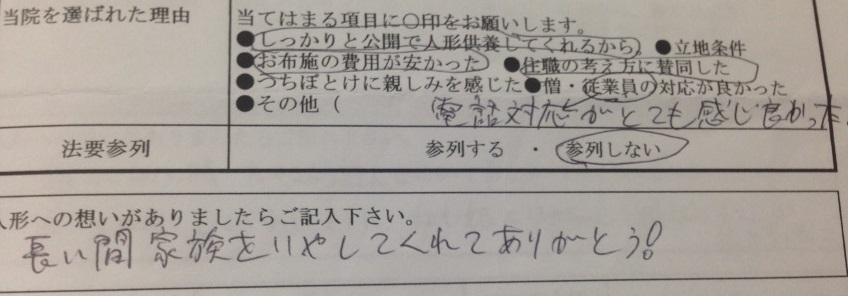 当院を選ばれた理由
当てはまる項目に○印をお願いします。
●しっかりと公開で人形供養してくれるから ●立地条件
●お布施の費用が安かった ●住職の考え方に賛同した
●つちぼとけに親しみを感じた●僧・従業員の対応が良かった
●その他（ 電話対応がとても感じ良かった。
法要参列
参列する ・ 参列しない
人形への想いがありましたらご記入下さい。
長い間家族をいやしてくれてありがとう!